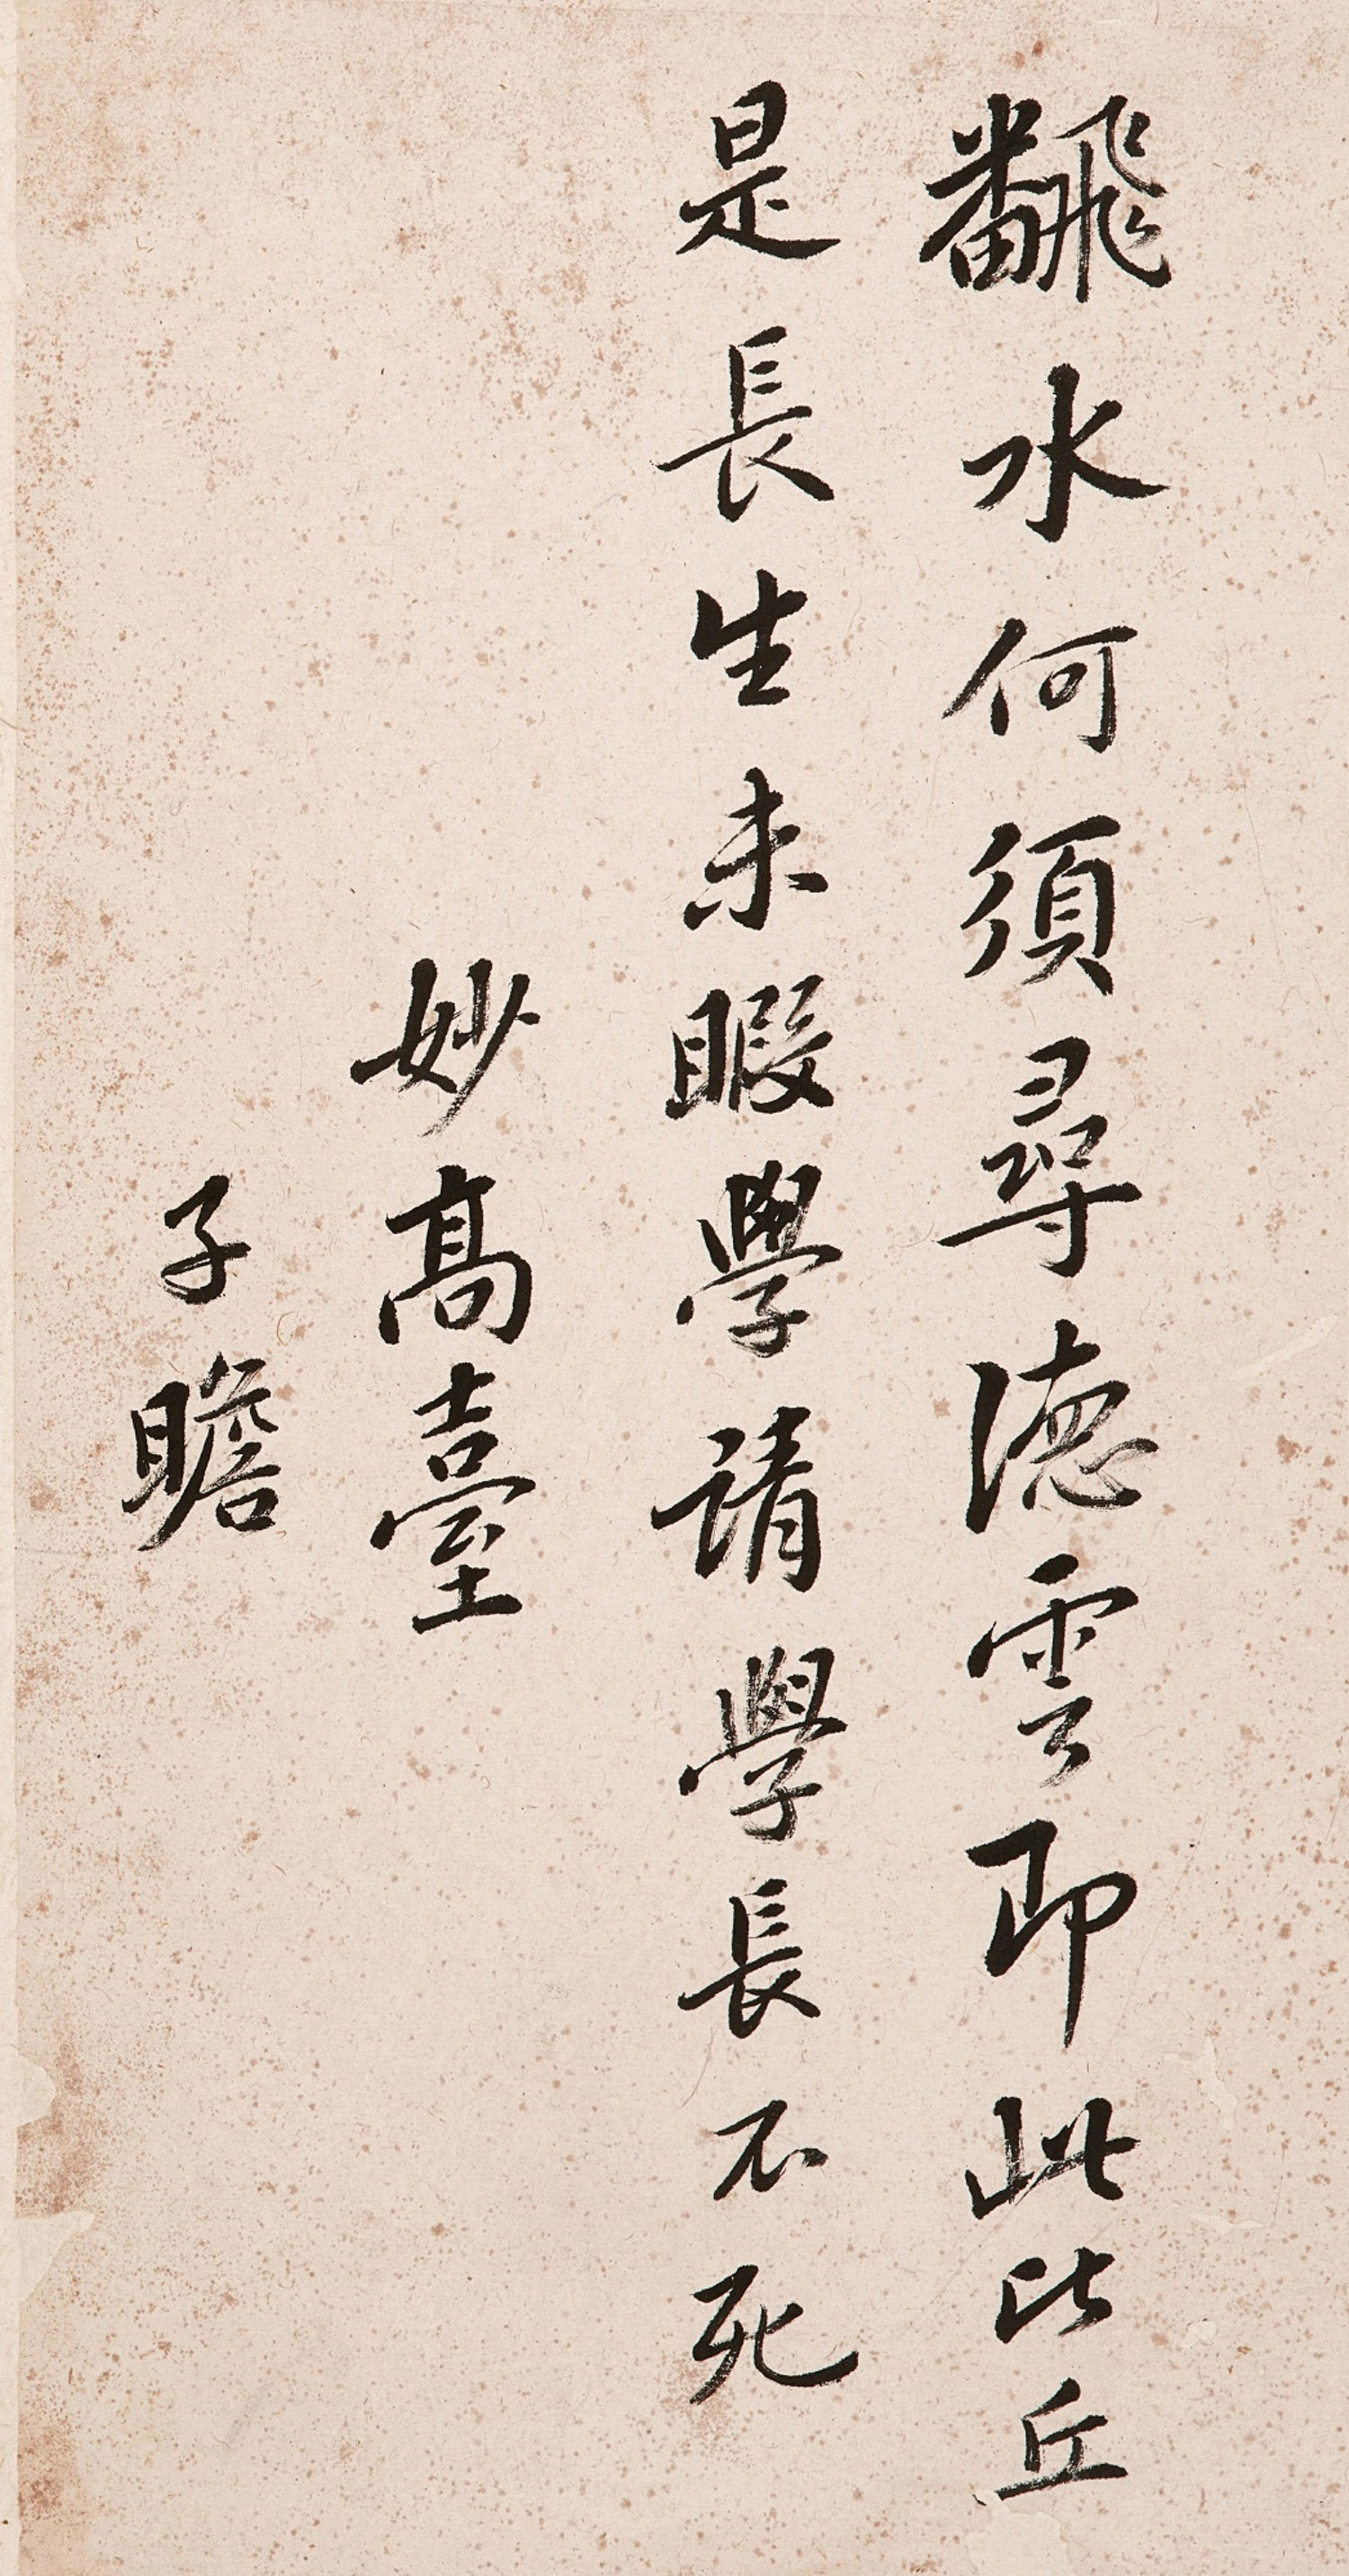 飜水何須尋德雲即此比丘
是長生未暇學請學長不死
妙高臺
子瞻